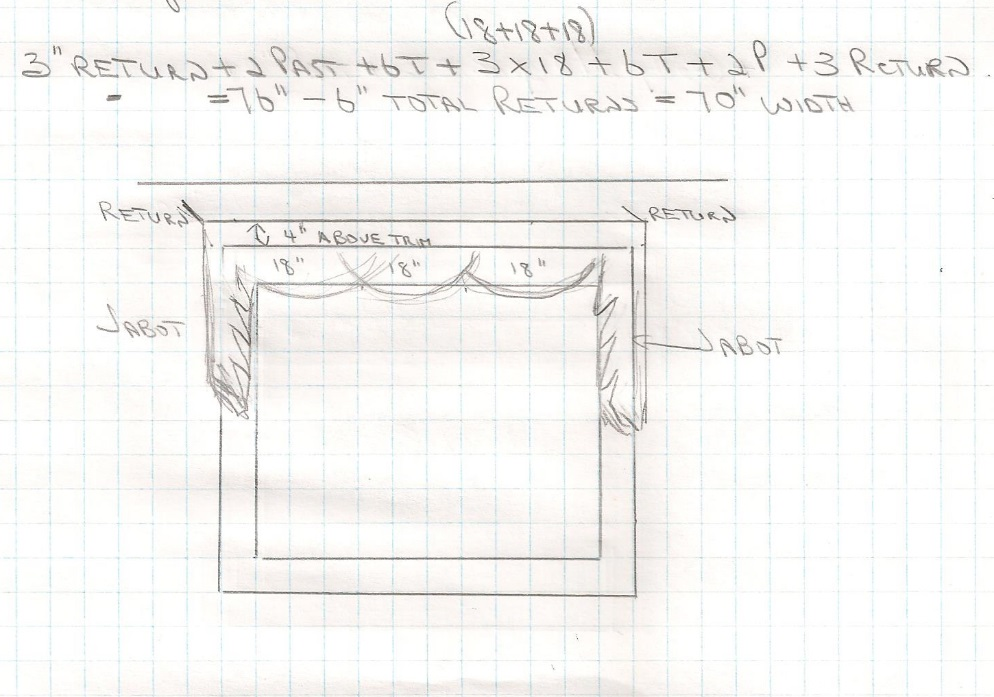 (18+18+18)
3" RETURN + 2 PAST + 6T + 3 x 18 + 6T + 2P + 3 RETURN
- = 76" - 6" TOTAL RETURNS = 70" WIDTH
RETURN
RETURN
4" ABOVE TRIM
18" 18" 18"
JABOT
JABOT